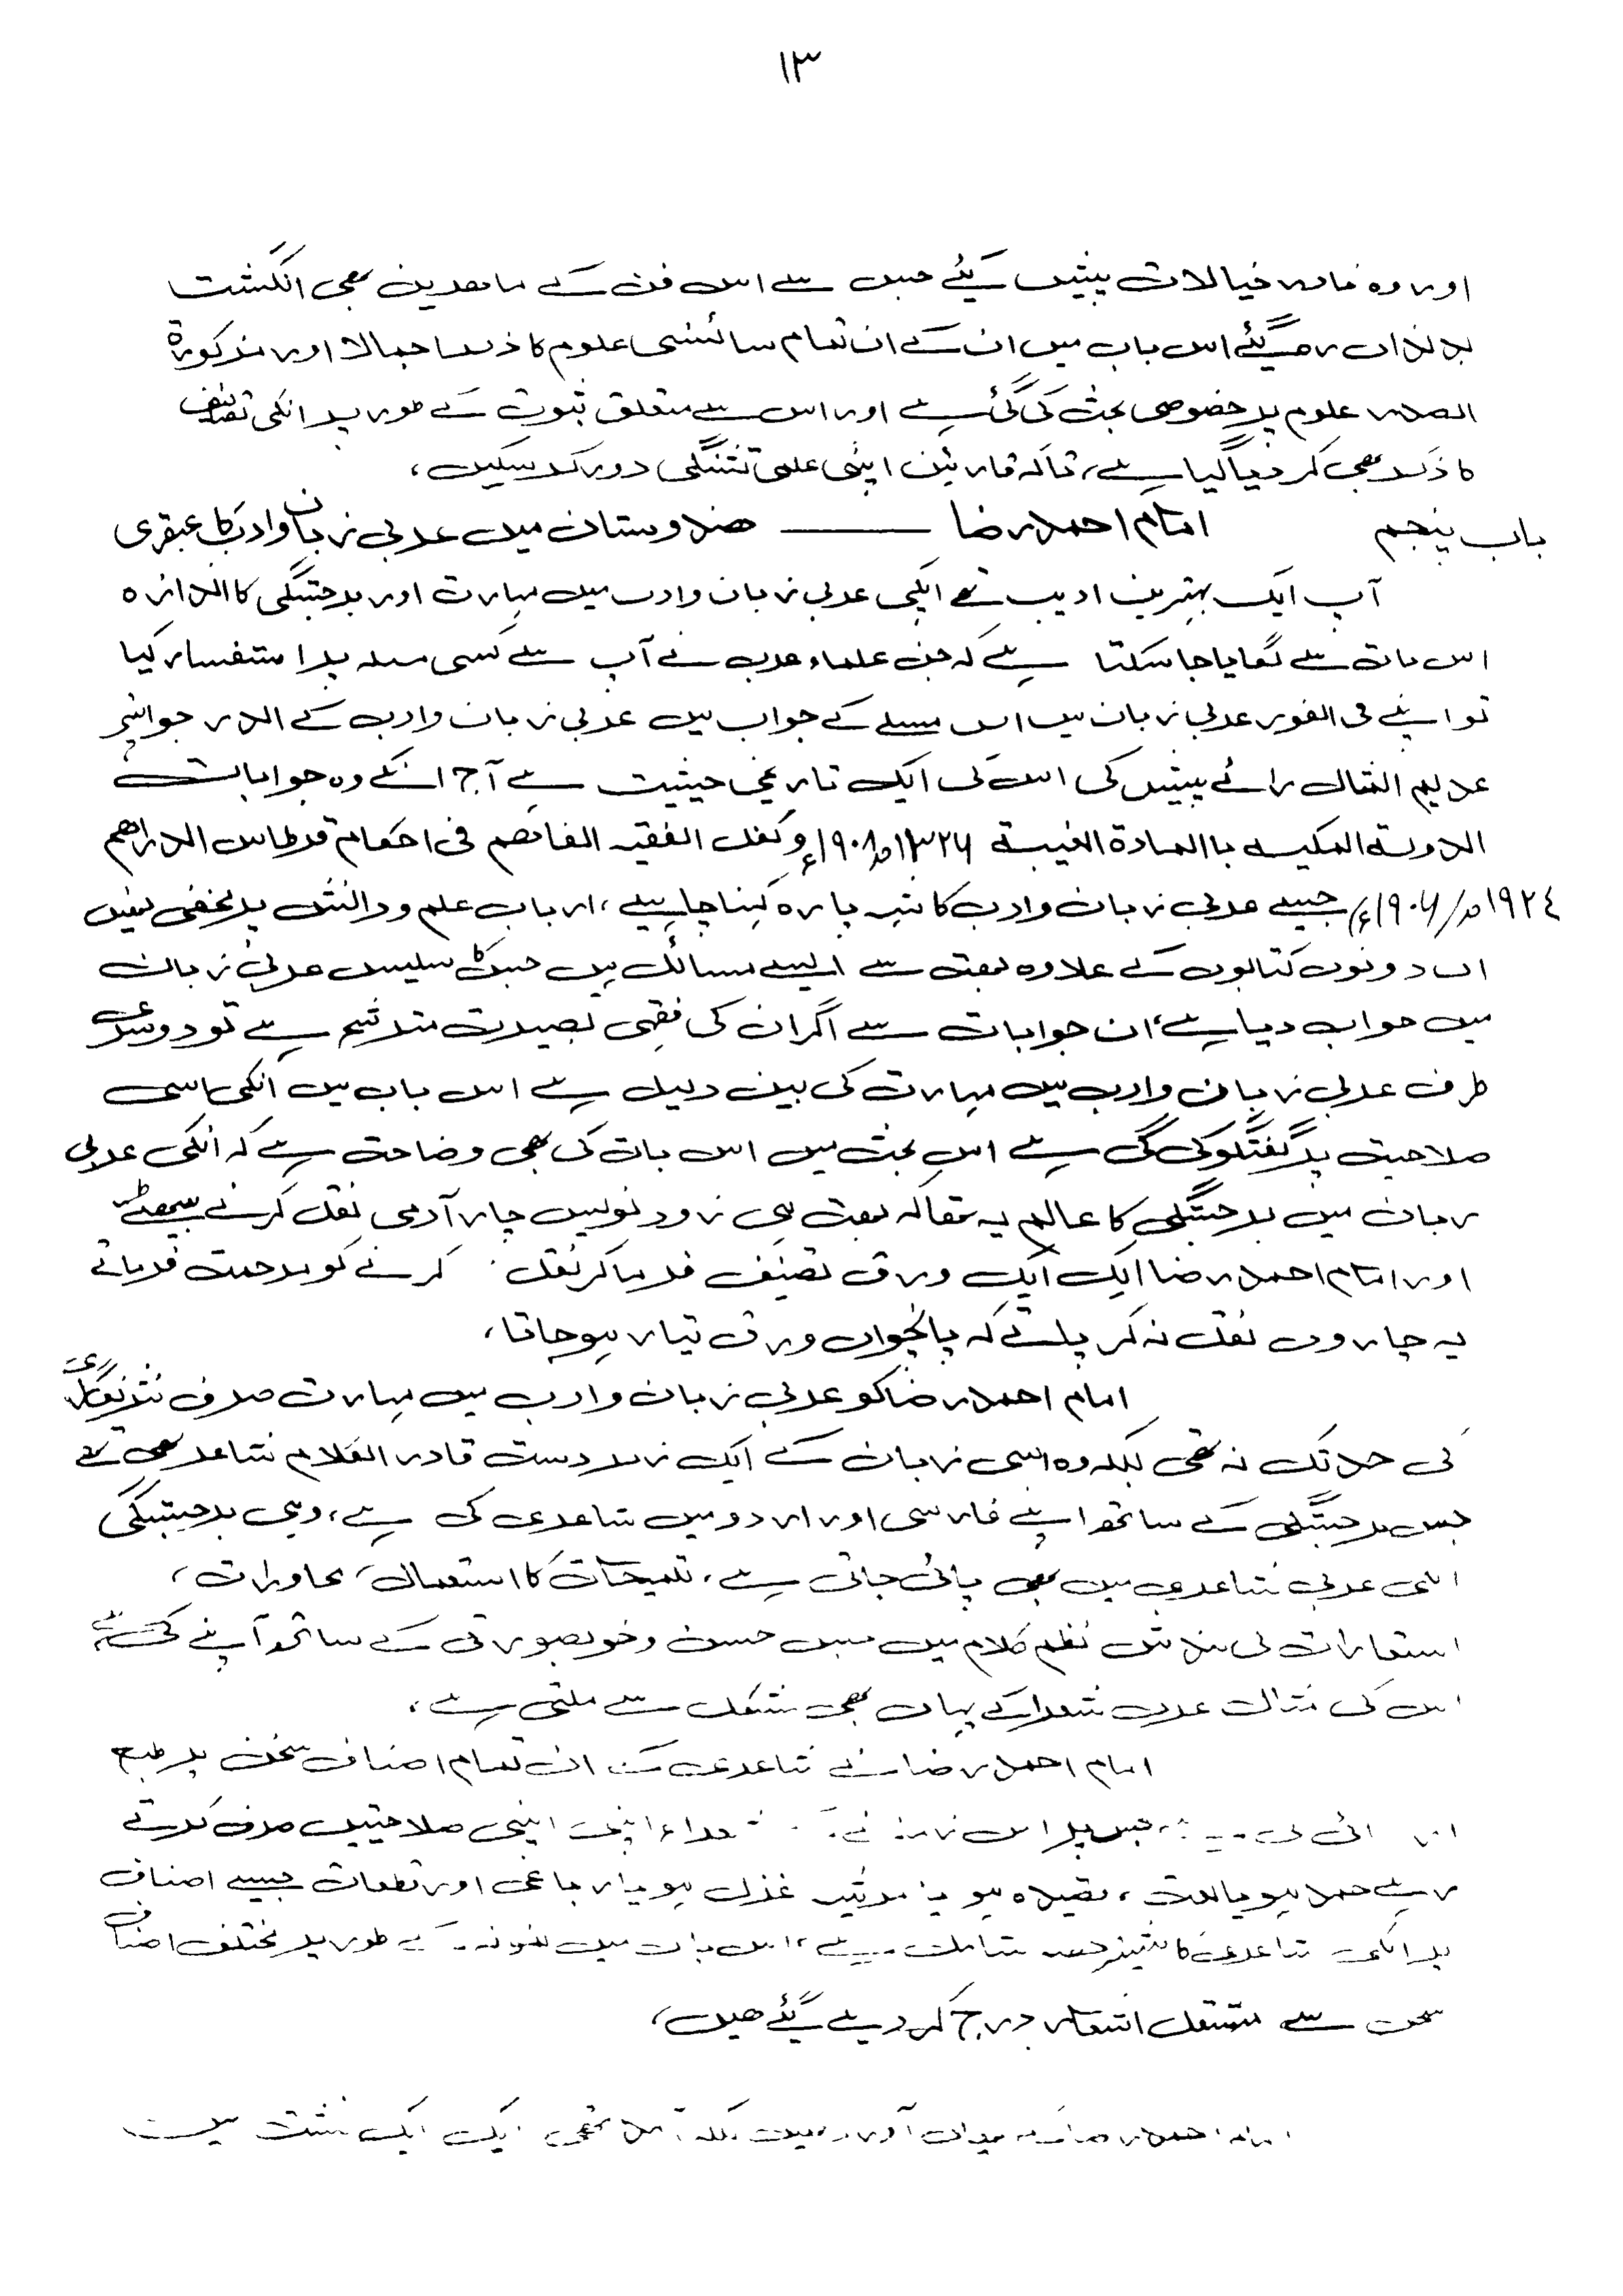 ۱۳
اور وہ نادر خیالات پیش کیئے جس سے اس فن کے ماہرین بھی انگشت
بدنداں رہ گیئے اس باب میں ان کے ان تمام سائنسی علوم کا ذکر اجمالا اور مذکورۃ
الصدر علوم پر خصوصی بحث کی گئی ہے اور اس سے متعلق ثبوت کے طور پر انکی تصانیف
کا ذکر بھی کر دیا گیا ہے، تاکہ قارئین اپنی علمی تشنگی دور کر سکیں،
باب پنجم امام احمد رضا ــــــــ ھندوستان میں عربی زبان و ادب کا عبقری
آپ ایک بہترین ادیب تھے انکی عربی زبان و ادب میں مہارت اور برجستگی کا اندازہ
اس بات سے لگایا جا سکتا ہے کہ جن علماء عرب نے آپ سے کسی مسلہ پر استفسار کیا
تو اپنے فی الفور عربی زبان میں اس مسلے کے جواب میں عربی زبان و ادب کے اندر جو اپنی
عدیم المثال رائے پیش کی اس کی ایک تاریخی حیثیت ہے آج انکے وہ جوابات
الدولۃ المکیہ باالمادۃ الغیبۃ ۱۳۲۶ھ/۱۹۰۸ء و کفل الفقیہ الفاھم فی احکام قرطاس الدراھم
۱۹۲٤ھ/۱۹۰۶ء جیسے عربی زبان و ادب کا شہ پارہ کہنا چاہیے، ارباب علم و دانش پر مخفی نہیں
ان دونوں کتابوں کے علاوہ بہت سے ایسے مسائل ہیں جس کا سلیس عربی زبان
میں جواب دیا ہے، ان جوابات سے اگر ان کی فقہی بصیرت مترشح ہے تو دوسری
طرف عربی زبان و ادب میں مہارت کی بین دلیل ہے اس باب میں انکی اسی
صلاحیت پر گفتگو کی گی ہے اس بحث میں اس بات کی بھی وضاحت ہے کہ انکی عربی
زبان میں برجستگی کا عالم یہ تھا کہ بہت ہی زود نویس چار آدمی نقل کرنے بیٹھتے
اور امام احمد رضا ایک ایک ورق تصنیف فرما کر نقل کرنے کو مرحمت فرماتے
یہ چاروں نقل نہ کر پاتے کہ پانچواں ورق تیار ہو جاتا،
امام احمد رضا کو عربی زبان و ادب میں مہارت صرف نثر نگاری
کی حد تک نہ تھی بلکہ وہ اسی زبان کے ایک زبردست قادر الکلام شاعر بھی تھے
جس برجستگی کے ساتھ اپنے فارسی اور اردو میں شاعری کی ہے، وہی برجستگی
انکی عربی شاعری میں بھی پائی جاتی ہے، تلمیحات کا استعمال، محاورات،
استعارات کی بندش نظم کلام میں جس حسن و خوبصورتی کے ساتھ آپنے کی ہے
اس کی مثال عرب شعرا کے یہاں بھی مشکل سے ملتی ہے،
امام احمد رضا نے شاعری کے ان تمام اصناف سخن پر طبع
ازمائی کی ہے، جس پر اس زمانہ کے شعراء اپنی اپنی صلاحیتیں صرف کرتے
رہے حمد ہو یا نعت، قصیدہ ہو یا مرثیہ غزل ہو یا رباعی اور قطعات جیسے اصناف
پر انکی شاعری کا بیشتر حصہ شامل ہے، اس باب میں نمونہ کے طور پر مختلف اصناف
سخن سے مشتمل اشعار درج کر دیے گیئے ھیں،
امام احمد رضا کے یہاں آورد نہیں بلکہ آمد تھی ایک ایک نشت میں